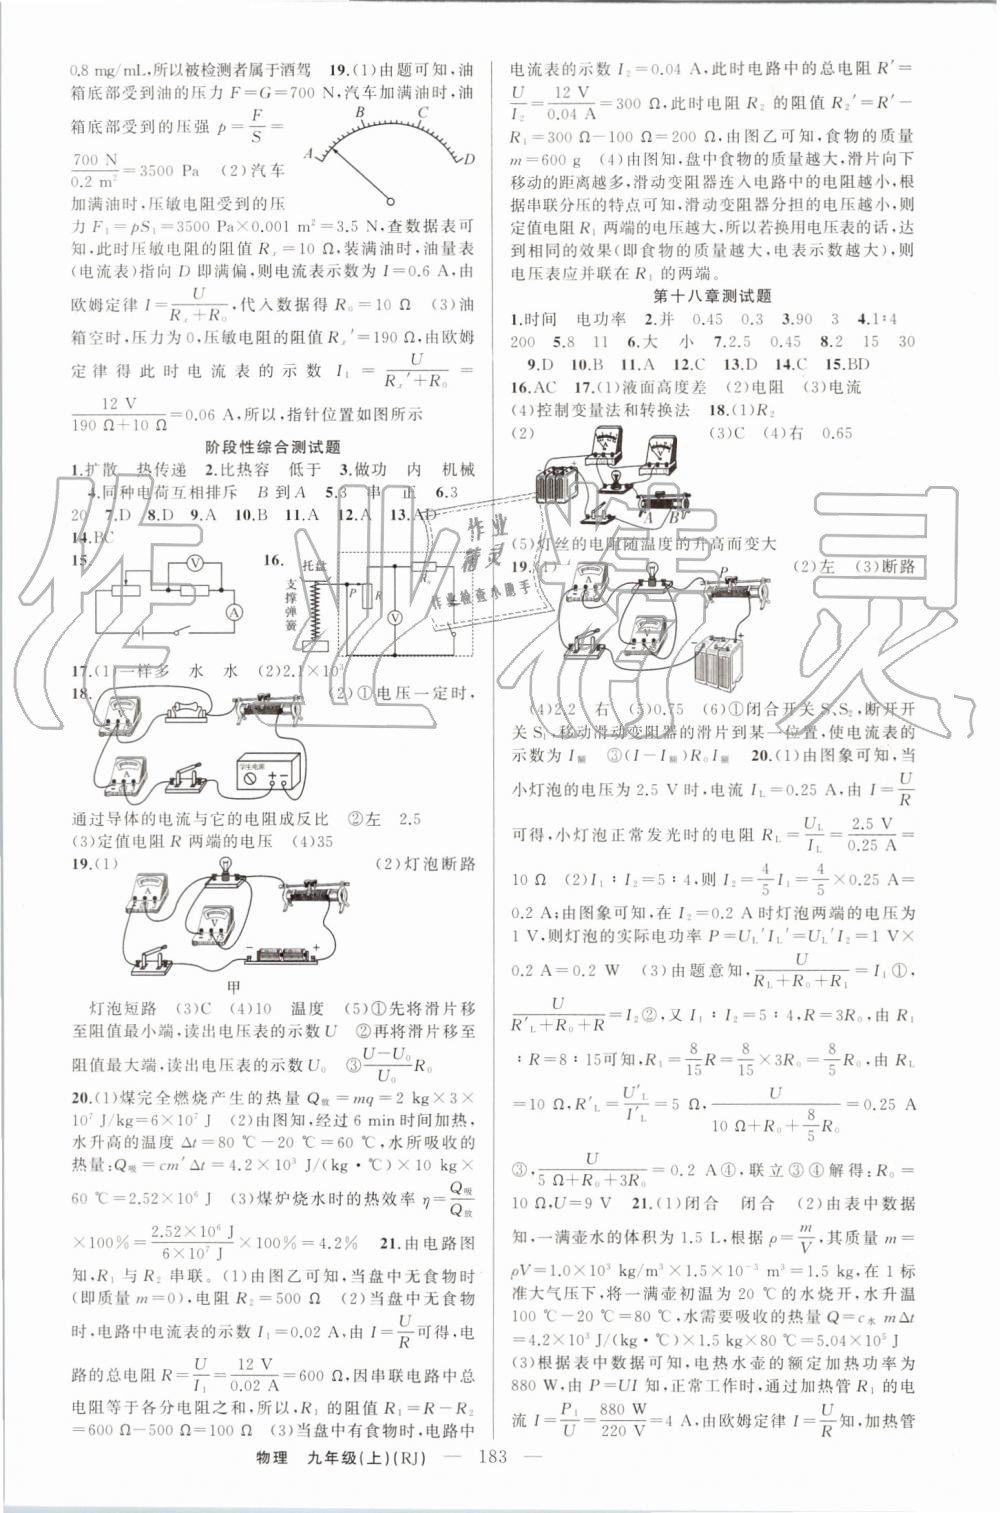 0.8 mg/mL,所以被检测者属于酒驾　19.(1)由题可知,油
箱底部受到油的压力 F=G=700 N,汽车加满油时,油
箱底部受到的压强 p=F/S=
B C
A D
700 N/0.2 m²=3500 Pa　(2)汽车
加满油时,压敏电阻受到的压
力 F₁=pS₁=3500 Pa×0.001 m²=3.5 N,查数据表可
知,此时压敏电阻的阻值 Rₓ=10 Ω,装满油时,油量表
(电流表)指向 D 即满偏,则电流表示数为 I=0.6 A,由
欧姆定律 I=U/(Rₓ+R₀),代入数据得 R₀=10 Ω　(3)油
箱空时,压力为0,压敏电阻的阻值 Rₓ′=190 Ω,由欧姆
定律得此时电流表的示数 I₁=U/(Rₓ′+R₀)=
12 V/(190 Ω+10 Ω)=0.06 A,所以,指针位置如图所示
阶段性综合测试题
1.扩散　热传递　2.比热容　低于　3.做功　内　机械
4.同种电荷互相排斥　B 到 A　5.3　串　正　6.3
20　7.D　8.D　9.A　10.B　11.A　12.A　13.AD
14.BC
15.
V
A
16.
托盘
支撑弹簧
P
R
R₀
V
17.(1)一样多　水　水　(2)2.1×10³
18.
学生电源
(2)①电压一定时,
通过导体的电流与它的电阻成反比　②左　2.5
(3)定值电阻 R 两端的电压　(4)35
19.(1)
A
V
－　＋
甲
(2)灯泡断路
灯泡短路　(3)C　(4)10　温度　(5)①先将滑片移
至阻值最小端,读出电压表的示数 U　②再将滑片移至
阻值最大端,读出电压表的示数 U₀　③(U−U₀)/U₀ R₀
20.(1)煤完全燃烧产生的热量 Q放=mq=2 kg×3×
10⁷ J/kg=6×10⁷ J　(2)由图知,经过 6 min 时间加热,
水升高的温度 Δt=80 ℃−20 ℃=60 ℃,水所吸收的
热量:Q吸=cm′Δt=4.2×10³ J/(kg·℃)×10 kg×
60 ℃=2.52×10⁶ J　(3)煤炉烧水时的热效率 η=Q吸/Q放
×100%=2.52×10⁶ J/6×10⁷ J×100%=4.2%　21.由电路图
知,R₁ 与 R₂ 串联。(1)由图乙可知,当盘中无食物时
(即质量 m=0),电阻 R₂=500 Ω　(2)当盘中无食物
时,电路中电流表的示数 I₁=0.02 A,由 I=U/R可得,电
路的总电阻 R=U/I₁=12 V/0.02 A=600 Ω,因串联电路中总
电阻等于各分电阻之和,所以,R₁ 的阻值 R₁=R−R₂
=600 Ω−500 Ω=100 Ω　(3)当盘中有食物时,电路中
电流表的示数 I₂=0.04 A,此时电路中的总电阻 R′=
U/I₂=12 V/0.04 A=300 Ω,此时电阻 R₂ 的阻值 R₂′=R′−
R₁=300 Ω−100 Ω=200 Ω,由图乙可知,食物的质量
m=600 g　(4)由图知,盘中食物的质量越大,滑片向下
移动的距离越多,滑动变阻器连入电路中的电阻越小,根
据串联分压的特点可知,滑动变阻器分担的电压越小,则
定值电阻 R₁ 两端的电压越大,所以若换用电压表的话,达
到相同的效果(即食物的质量越大,电表示数越大),则
电压表应并联在 R₁ 的两端。
第十八章测试题
1.时间　电功率　2.并　0.45　0.3　3.90　3　4.1∶4
200　5.8　11　6.大　小　7.2.5　0.45　8.2　15　30
9.D　10.B　11.A　12.C　13.D　14.C　15.BD
16.AC　17.(1)液面高度差　(2)电阻　(3)电流
(4)控制变量法和转换法　18.(1)R₂
(2)
A B
(3)C　(4)右　0.65
(5)灯丝的电阻随温度的升高而变大
19.(1)
P
(2)左　(3)断路
(4)2.2　右　(5)0.75　(6)①闭合开关 S、S₂,断开开
关 S₁,移动滑动变阻器的滑片到某一位置,使电流表的
示数为 I额　③(I−I额)R₀I额　20.(1)由图象可知,当
小灯泡的电压为 2.5 V 时,电流 I_L=0.25 A,由 I=U/R
可得,小灯泡正常发光时的电阻 R_L=U_L/I_L=2.5 V/0.25 A=
10 Ω　(2)I₁∶I₂=5∶4,则 I₂=4/5 I₁=4/5×0.25 A=
0.2 A;由图象可知,在 I₂=0.2 A 时灯泡两端的电压为
1 V,则灯泡的实际电功率 P=U_L′I_L′=U_L′I₂=1 V×
0.2 A=0.2 W　(3)由题意知,U/(R_L+R₁+R₀)=I₁①,
U/(R′_L+R₀+R)=I₂②,又 I₁∶I₂=5∶4,R=3R₀,由 R₁
∶R=8∶15可知,R₁=8/15 R=8/15×3R₀=8/5 R₀,由 R_L
=10 Ω,R′_L=U′_L/I′_L=5 Ω,U/(10 Ω+R₀+8/5 R₀)=0.25 A
③,U/(5 Ω+R₀+3R₀)=0.2 A④,联立③④解得:R₀=
10 Ω,U=9 V　21.(1)闭合　闭合　(2)由表中数据
知,一满壶水的体积为 1.5 L,根据 ρ=m/V,其质量 m=
ρV=1.0×10³ kg/m³×1.5×10⁻³ m³=1.5 kg,在 1 标
准大气压下,将一满壶初温为 20 ℃的水烧开,水升温
100 ℃−20 ℃=80 ℃,水需要吸收的热量 Q=c水mΔt
=4.2×10³ J/(kg·℃)×1.5 kg×80 ℃=5.04×10⁵ J
(3)根据表中数据可知,电热水壶的额定加热功率为
880 W,由 P=UI 知,正常工作时,通过加热管 R₁ 的电
流 I=P₁/U=880 W/220 V=4 A,由欧姆定律 I=U/R知,加热管
物理　九年级(上)(RJ)　— 183 —
作业精灵
作业精灵
作业检查小助手